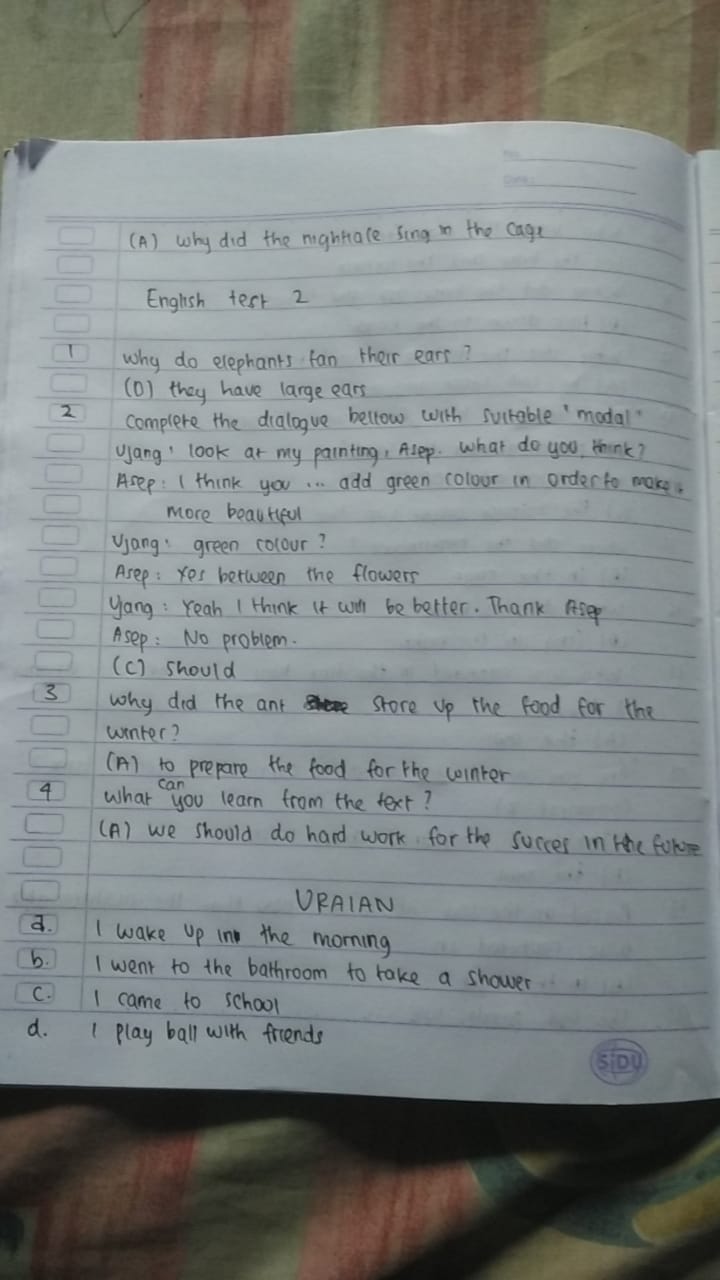 No.
Date:
(A) why did the nightale sing in the cage
English test 2
1 why do elephants fan their ears?
(D) they have large ears
2 complete the dialogue bellow with suitable 'modal'
Ujang: look at my painting, Asep. what do you think?
Asep: I think you ... add green colour in order to make it
more beautiful
Ujang: green colour?
Asep: Yes between the flowers
Yang: Yeah I think it will be better. Thank Asep
Asep: No problem.
(C) should
3 why did the ant store up the food for the
winter?
(A) to prepare the food for the winter
4 what can you learn from the text?
(A) we should do hard work for the succes in the future
URAIAN
a. I wake up in the morning
b. I went to the bathroom to take a shower
c. I came to school
d. I play ball with friends
SiDU